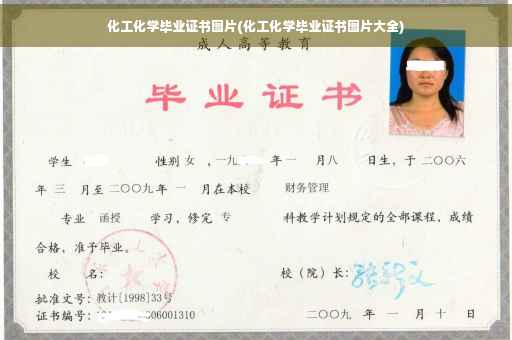 化工化学毕业证书图片(化工化学毕业证书图片大全)
成人高等教育
毕业证书
学生 性别 女 ，一九 年 一 月 八 日生，于 二〇〇六
年 三 月至 二〇〇九 年 一 月在本校 财务管理
专业 函授 学习，修完 专 科教学计划规定的全部课程，成绩
合格，准予毕业。
校 名： 校（院）长：
批准文号：教计[1998]33号
证书编号： 06001310 二〇〇九 年 一 月 十 日